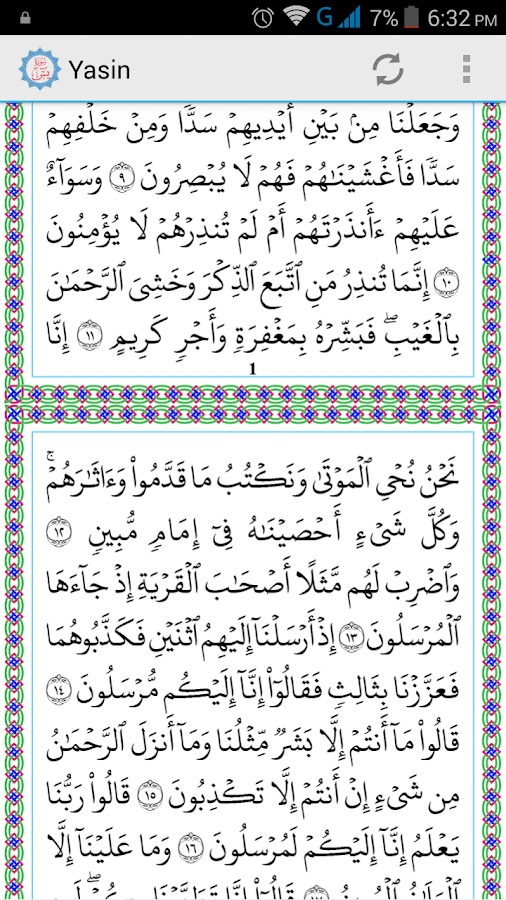 G 7% 6:32 PM
Yasin
وَجَعَلْنَا مِنۢ بَيْنِ أَيْدِيهِمْ سَدًّا وَمِنْ خَلْفِهِمْ
سَدًّا فَأَغْشَيْنَٰهُمْ فَهُمْ لَا يُبْصِرُونَ ٩ وَسَوَآءٌ
عَلَيْهِمْ ءَأَنذَرْتَهُمْ أَمْ لَمْ تُنذِرْهُمْ لَا يُؤْمِنُونَ
١٠ إِنَّمَا تُنذِرُ مَنِ ٱتَّبَعَ ٱلذِّكْرَ وَخَشِىَ ٱلرَّحْمَٰنَ
بِٱلْغَيْبِ ۖ فَبَشِّرْهُ بِمَغْفِرَةٍ وَأَجْرٍ كَرِيمٍ ١١ إِنَّا
1
نَحْنُ نُحْىِ ٱلْمَوْتَىٰ وَنَكْتُبُ مَا قَدَّمُوا۟ وَءَاثَٰرَهُمْ ۚ
وَكُلَّ شَىْءٍ أَحْصَيْنَٰهُ فِىٓ إِمَامٍ مُّبِينٍ ١٢
وَٱضْرِبْ لَهُم مَّثَلًا أَصْحَٰبَ ٱلْقَرْيَةِ إِذْ جَآءَهَا
ٱلْمُرْسَلُونَ ١٣ إِذْ أَرْسَلْنَآ إِلَيْهِمُ ٱثْنَيْنِ فَكَذَّبُوهُمَا
فَعَزَّزْنَا بِثَالِثٍ فَقَالُوٓا۟ إِنَّآ إِلَيْكُم مُّرْسَلُونَ ١٤
قَالُوا۟ مَآ أَنتُمْ إِلَّا بَشَرٌ مِّثْلُنَا وَمَآ أَنزَلَ ٱلرَّحْمَٰنُ
مِن شَىْءٍ إِنْ أَنتُمْ إِلَّا تَكْذِبُونَ ١٥ قَالُوا۟ رَبُّنَا
يَعْلَمُ إِنَّآ إِلَيْكُمْ لَمُرْسَلُونَ ١٦ وَمَا عَلَيْنَآ إِلَّا